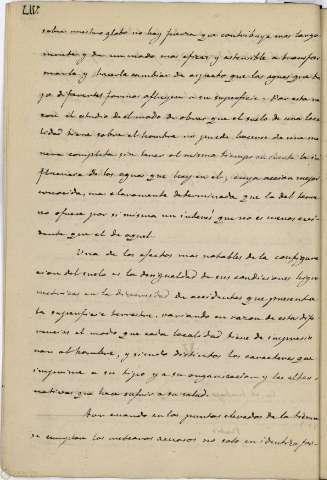 sobre nuestro globo no hay fuerza que contribuya mas largo
y de un modo mas eficaz y ostensible a transfor
marla y hacerla cambiar de aspecto que las aguas que ba
jo diferentes formas afluyen a su superficie. Por esta ra
zon el estudio de el modo de obrar que el suelo de una loca
lidad tiene sobre el hombre no puede hacerse de una ma
nera completa sin tener al mismo tiempo en cuenta la in
fluencia de las aguas que hay en el, cuya accion mejor
conocida, mas claramente determinada que la del terre
no ofrece por si misma un interes que no es menos evi
dente que el de aquel.
Una de los efectos mas notables de la configura
cion del suelo es la desigualdad de sus condiciones higro
metricas en la diversidad de accidentes que presenta
la superficie terrestre, variando en razon de estas dife
rencias el modo que cada localidad tiene de impresio
nar al hombre, y siendo distintos los caracteres que
imprime a su tipo y a su organizacion y las alter
nativas que hace sufrir a su salud.
Aun cuando en los puntos elevados de la tierra
se cumplan los meteoros acuosos no solo en identica for